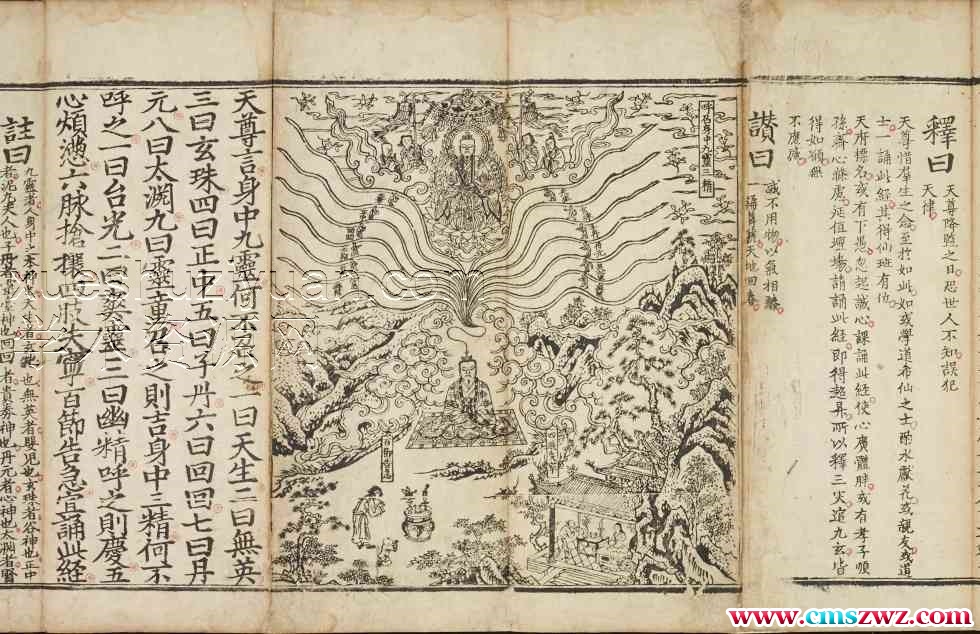 釋曰
天尊降臨之日忍世人不知誤犯
天律
天尊惜羣生之念至於如此如或學道希仙之士酌水獻花或親友或道
士一誦此經其得仙班有位
天府標名或有下愚忽起誠心課誦此經使心廣體胖或有孝子順
孫齋心滌慮延值壇場諷誦此經即得超昇所以釋三災這九玄皆
得如
不應
讚曰
誠不用物以氣相
一 天地回春
呼召身中九靈三精
天尊言身中九靈何不召之一曰天生二曰無英
三曰玄珠四曰正中五曰子丹六曰回回七曰丹
元八曰太淵九曰靈童召之則吉身中三精何不
呼之一曰台光二曰爽靈三曰幽精呼之則慶五
心煩懣六脉搶攘四肢失寧百節告急宜誦此經
註曰
九靈者人身中之本神也天生者 也無英者嬰兒也玄珠者谷神也正中
者泥丸 人也子丹者 神也回回者 神也丹元者心神也太淵者腎
www.cmszwz.com